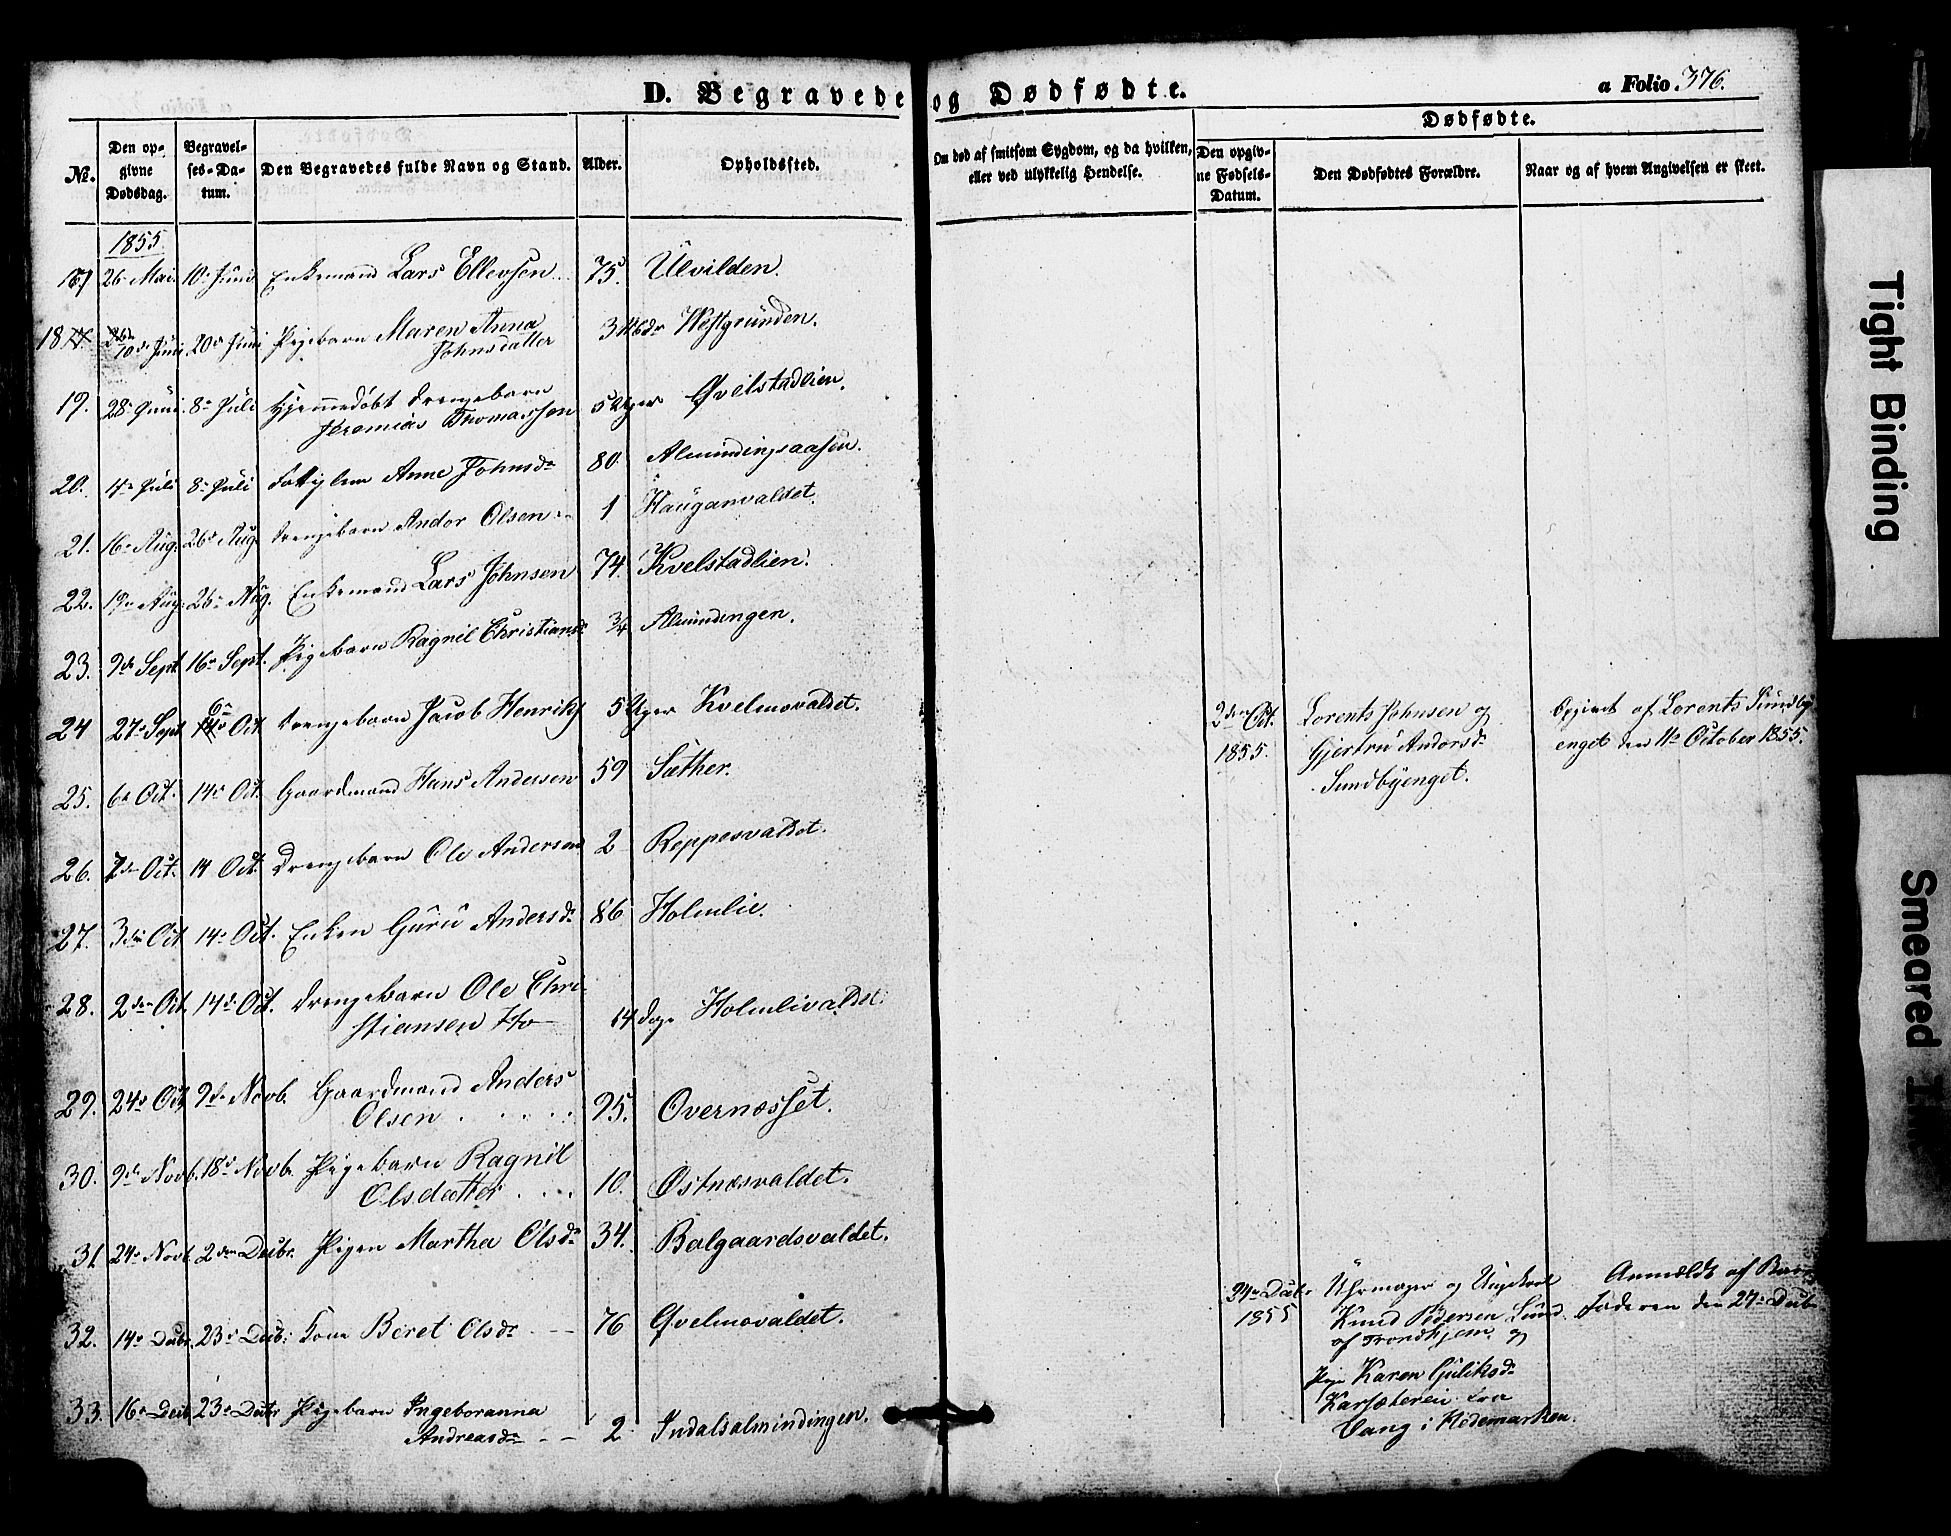 D. Begravede og Dødfødte.
a Folio 376.
Dødfødte.
№. Den opgivne Dødsdag. Begravelses-Datum. Den Begravedes fulde Navn og Stand. Alder. Opholdssted. Om død af smitsom Sygdom, og da hvilken, eller ved ulykkelig Hendelse. Den opgivne Fødsels-Datum. Den Dødfødtes Forældre. Naar og af hvem Angivelsen er skeet.
1855
17 26 Mai. 10 Juni. Enkemand Lars Ellevsen 75. Ulvilden.
18 10de Juni 20de Juni Pigebarn Maren Anna
Johnsdatter 3 Mdr Westgrunden.
19. 28 Juni. 8 Juli Hjemmedøbt Drengebarn
Jeremias Thomassen 5 Uger Qvelstadlien.
20. 4 Juli 8 Juli Fattiglem Anne Johnsdr 80. Almindingsaasen.
21. 16 Aug. 26 Aug. Drengebarn Andor Olsen 1 Hauganvaldet.
22. 19 Aug. 26 Aug. Enkemand Lars Johnsen 74. Kvelstadlien.
23. 9de Sept. 16 Sept. Pigebarn Ragnil Christiansdr 3/4 Almindingen.
24 27 Sept 6 Oct. Drengebarn Jacob Henriks 5 Uger Kvelmovaldet.
2den Oct. 1855. Lorents Johnsen og
Gjertru Andorsdr
Sundbyenget.
Opgivet af Lorents Sundby
enget den 11 October 1855.
25. 6 Oct. 14 Oct. Gaardmand Hans Andersen 59 Sæther.
26. 7de Oct. 14 Oct. Drengebarn Ole Andersen 2 Reppesvaldet.
27. 3die Oct 14 Oct. Enken Guru Andersdr 86 Holmlie.
28. 2den Oct. 14de Oct. Drengebarn Ole Chri-
stiansen 14 Dage Holmlivaldet.
29. 24 Oct. 9de Novb. Gaardmand Anders
Olsen 95. Overnæsset.
30. 9de Novb. 18 Novb. Pigebarn Ragnil
Olsdatter 10. Østnæsvaldet.
31 24 Novb. 2den Decbr. Pigen Martha Olsdr 34. Balgaardsvaldet.
32. 14 Decbr. 23 Decbr. Kone Beret Olsdr 76 Qvelmovaldet.
33. 16 Decbr. 23 Decbr. Pigebarn Ingeboranna
Andreasdr 2 Indalsalmindingen.
24 Decbr 1855 Uhrmager og Ungekarl
Knud Pedersen Lund
af Trondhjem og
Pige Karen Guliksdr
Karsæterei fra
Vang i Hedemarken.
Anmældt af Barne
faderen den 27 Decbr
Tight Binding
Smeared